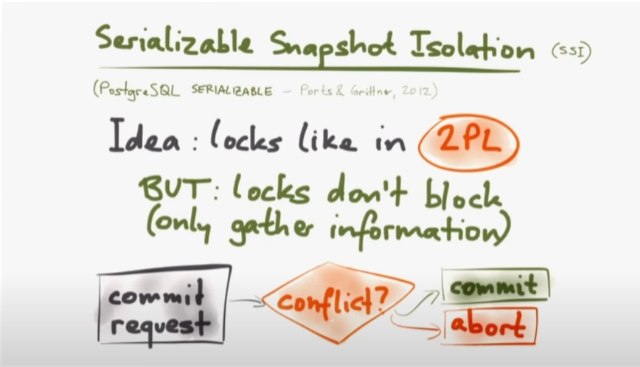 Serializable Snapshot Isolation (SSI)
(PostgreSQL SERIALIZABLE – Ports & Grittner, 2012)
Idea: locks like in 2PL
BUT: locks don't block
(only gather information)
commit
request
conflict?
commit
abort